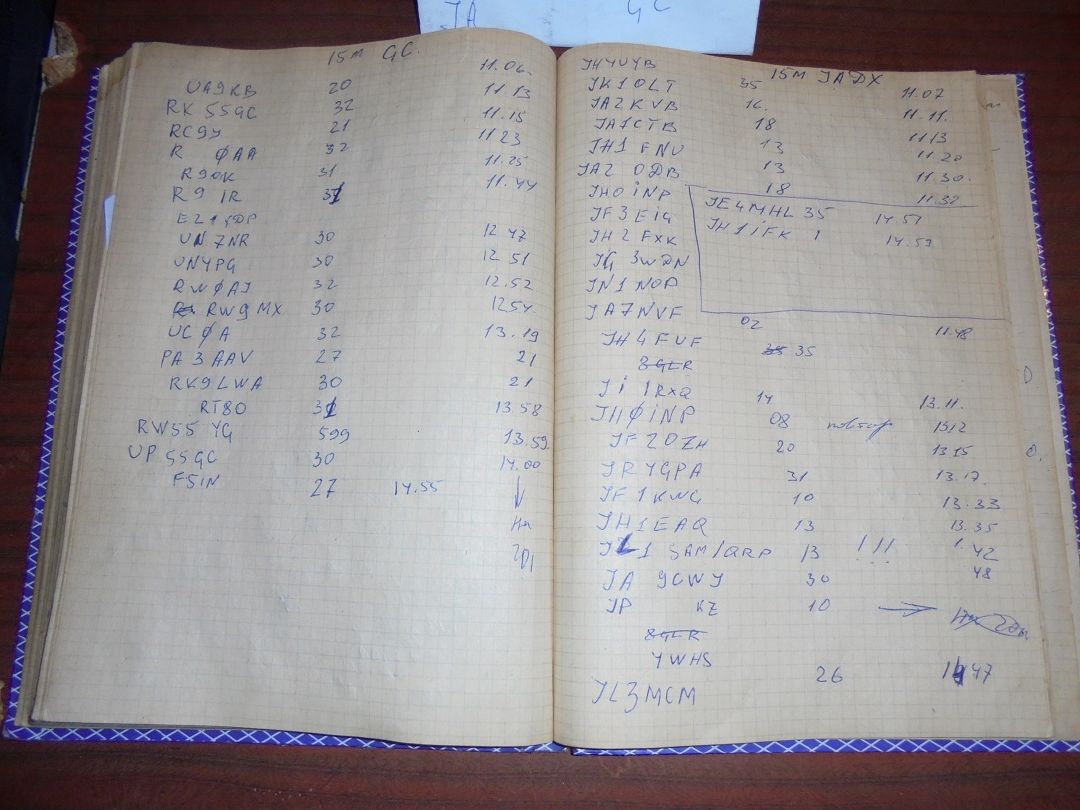 JA GC
15M GC.
UA9KB 20 11.06.
RK 55GC 32 11.13
RC9Y 21 11.15
R ØAA 32 11.23
R9OK 31 11.25
R9 IR 11.44
UN 7NR 30 12 47
UN4PG 30 12 51
RWØAJ 32 12.52
RW9MX 30 1254.
UCØA 32 13.19
PA 3 AAV 27 21
RK9LWA 30 21
RT80 13.58
RW55 YG 599 13.59.
UP 55GC 30 14.00
F5IN 27 14.55
15M JADX
JH4UYB 35 11.07
JK1OLT 16. 11.11.
JA2KVB 18 11.13
JA7CTB 13 11.20
JH1 FNU 13 11.30.
JA2 ODB 18 11.32
JHO iNP
JE4MHL 35 14.57
JF3EiG
JH1iFK 1 14.59
JH2 FXK
JG 3WDN
JN1 NOP
JA7NVF 02 11.48
JH4FUF 35
8GLR
Ji 1RXQ 14 13.11.
JHØiNP 08 повтор 1312
JF2OZH 20 13 15
JR4GPA 31 13.17.
JF1KWG 10 13.33
JH1EAQ 13 13.35
1 SAM/QRP 13 !!! 42
JA 9CWJ 30 48
JP KZ 10 →
8GLR
4WHS
JL3MCM 26 47